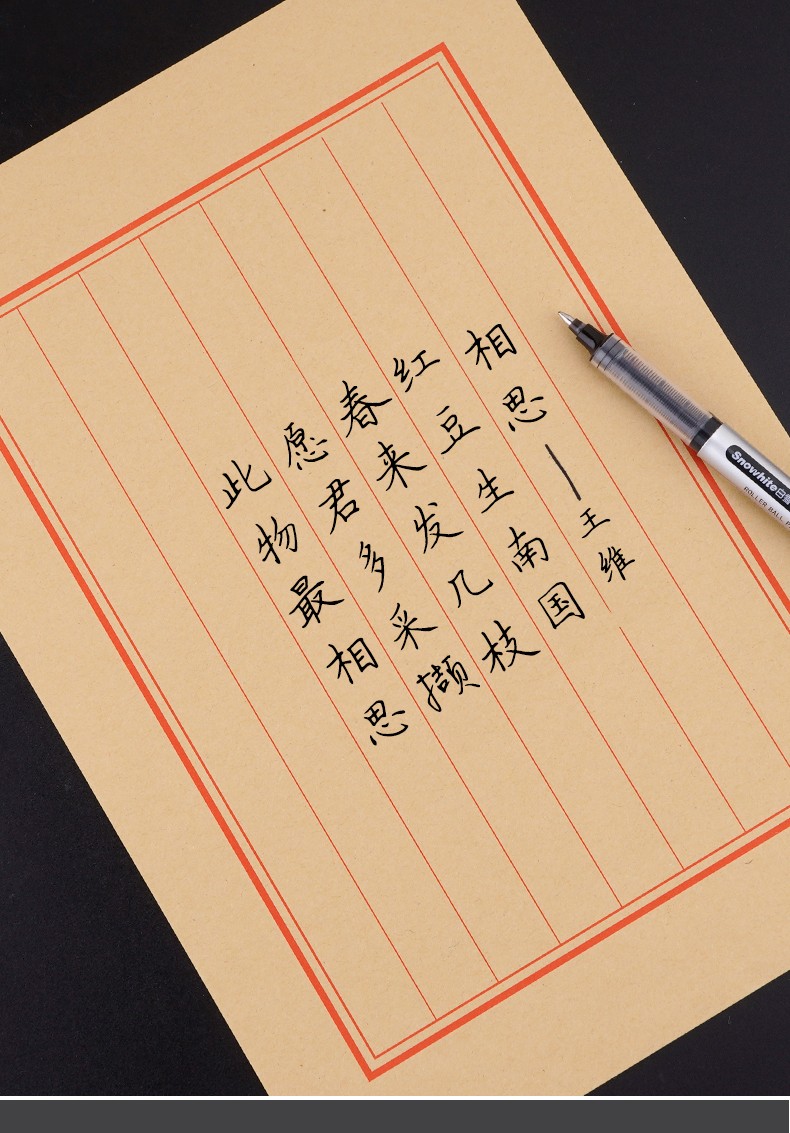 相思—王维
红豆生南国
春来发几枝
愿君多采撷
此物最相思
Snowhite白雪
ROLLER BALL